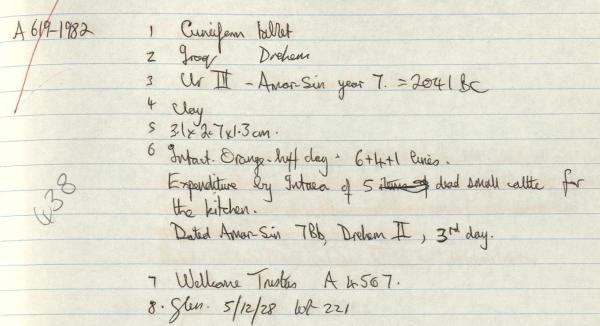 A 619-1982 1 Cuneiform tablet
2 Iraq Drehem
3 Ur III - Amar-Sin year 7. = 2041 BC
4 Clay
5 3.1 x 2.7 x 1.3 cm.
6 Intact. Orange-buff clay. 6+4+1 lines.
Expenditure by Intaea of 5 dead small cattle for
the kitchen.
Dated Amar-Sin 7Bb, Drehem II, 3rd day.
438
7 Wellcome Trustees A 4567.
8. Glen. 5/12/28 lot 221